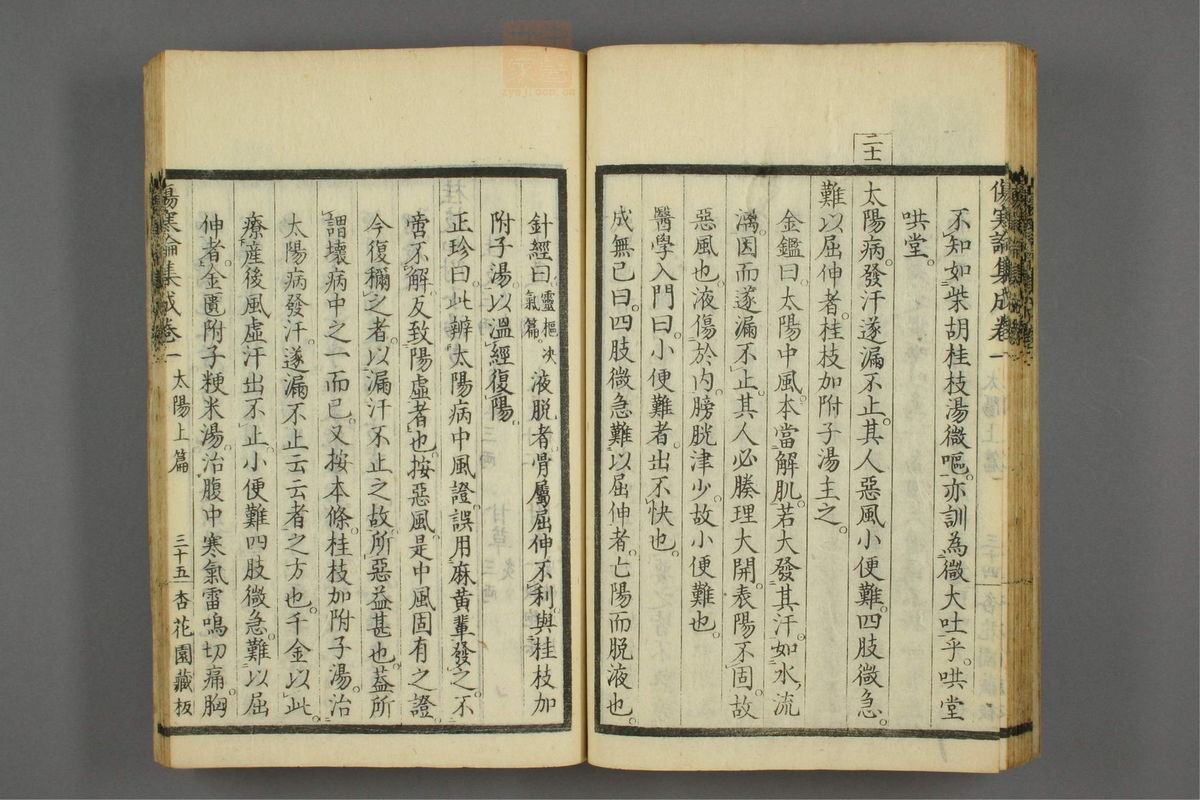 傷寒論集成卷一
不知如柴胡桂枝湯微嘔亦訓為微大吐乎哄堂
哄堂
二十一
太陽病發汗遂漏不止其人惡風小便難四肢微急
難以屈伸者桂枝加附子湯主之
金鑑曰太陽中風本當解肌若大發其汗如水流
漓因而遂漏不止其人必腠理大開表陽不固故
惡風也液傷於內膀胱津少故小便難也
醫學入門曰小便難者出不快也
成無已曰四肢微急難以屈伸者亡陽而脫液也
針經曰靈樞决氣篇液脫者骨屬屈伸不利與桂枝加
附子湯以溫經復陽
正珍曰此辨太陽病中風證誤用麻黃輩發之不
啻不解反致陽虛者也按惡風是中風固有之證
今復稱之者以漏汗不止之故所惡益甚也蓋所
謂壞病中之一而已又按本條桂枝加附子湯治
太陽病發汗遂漏不止云云者之方也千金以此
療產後風虛汗出不止小便難四肢微急難以屈
伸者金匱附子粳米湯治腹中寒氣雷鳴切痛胸
傷寒論集成卷一 太陽上篇 三十五 杏花園藏板